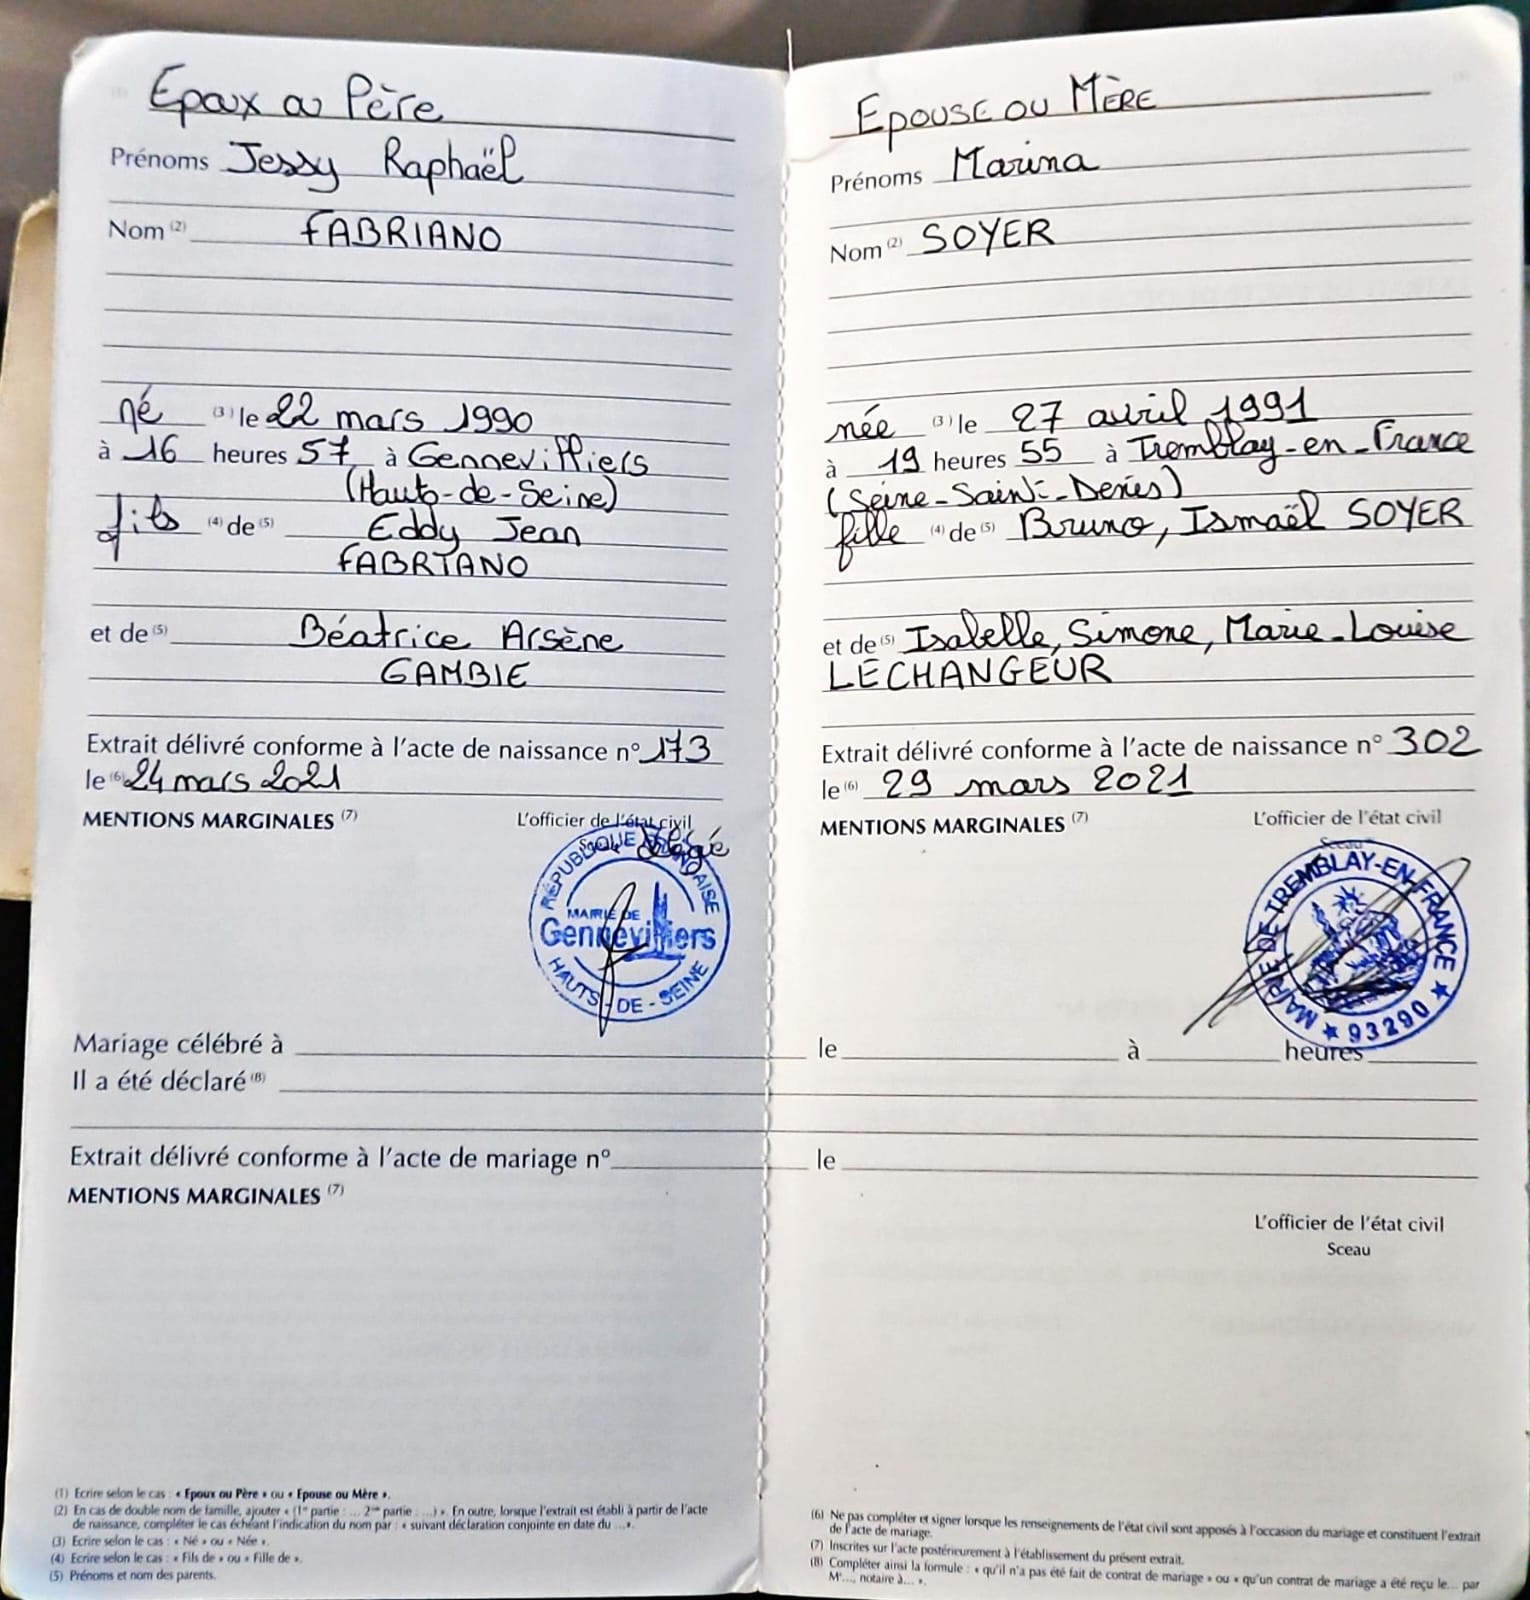 Epoux ou Père
Prénoms Jessy Raphaël
Nom (2) FABRIANO
né (3) le 22 mars 1990
à 16 heures 57 à Gennevilliers
(Hauts-de-Seine)
fils (4) de (5) Eddy Jean
FABRIANO
et de (5) Béatrice Arsène
GAMBIE
Extrait délivré conforme à l'acte de naissance n° 173
le (6) 24 mars 2021
MENTIONS MARGINALES (7)
L'officier de l'état civil
RÉPUBLIQUE FRANÇAISE
MAIRIE DE
Gennevilliers
HAUTS-DE-SEINE
Epouse ou Mère
Prénoms Marina
Nom (2) SOYER
née (3) le 27 avril 1991
à 19 heures 55 à Tremblay-en-France
(Seine-Saint-Denis)
fille (4) de (5) Bruno, Ismaël SOYER
et de (5) Isabelle, Simone, Marie-Louise
LECHANGEUR
Extrait délivré conforme à l'acte de naissance n° 302
le (6) 29 mars 2021
MENTIONS MARGINALES (7)
L'officier de l'état civil
Sceau
MAIRIE DE TREMBLAY-EN-FRANCE
★ 93290 ★
Mariage célébré à le à heures
Il a été déclaré (8)
Extrait délivré conforme à l'acte de mariage n° le
MENTIONS MARGINALES (7)
L'officier de l'état civil
Sceau
(1) Ecrire selon le cas : « Epoux ou Père » ou « Epouse ou Mère ».
(2) En cas de double nom de famille, ajouter « (1re partie : ... 2me partie : ...) ». En outre, lorsque l'extrait est établi à partir de l'acte
de naissance, compléter le cas échéant l'indication du nom par : « suivant déclaration conjointe en date du ... ».
(3) Ecrire selon le cas : « Né » ou « Née ».
(4) Ecrire selon le cas : « Fils de » ou « Fille de ».
(5) Prénoms et nom des parents.
(6) Ne pas compléter et signer lorsque les renseignements de l'état civil sont apposés à l'occasion du mariage et constituent l'extrait
de l'acte de mariage.
(7) Inscrites sur l'acte postérieurement à l'établissement du présent extrait.
(8) Compléter ainsi la formule : « qu'il n'a pas été fait de contrat de mariage » ou « qu'un contrat de mariage a été reçu le... par
Me..., notaire à... ».